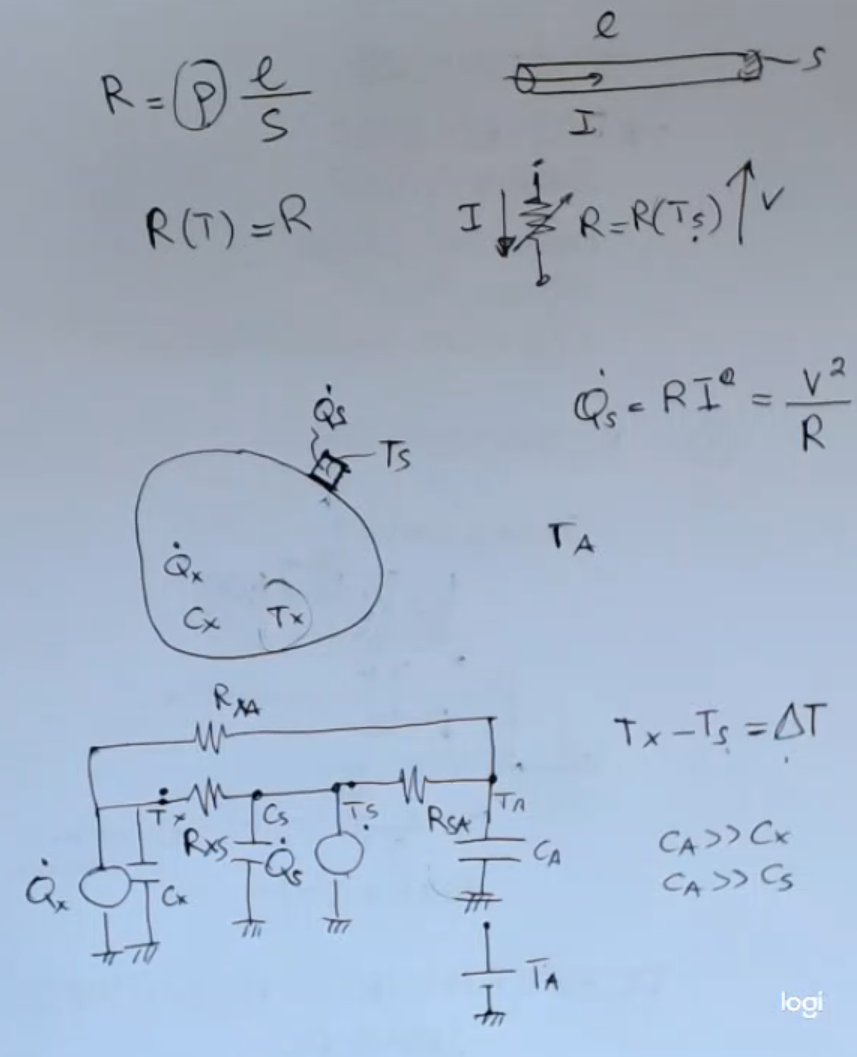 R = ρ l/S
l
S
I
R(T) = R
I R=R(Ts) V
Q̇s = RI² = V²/R
Q̇s
Ts
TA
Q̇x
Cx Tx
RXA
Tx - Ts = ΔT
Tx Cs Ts TA
RXS Q̇s RSA
CA
CA >> Cx
CA >> Cs
Q̇x Cx
TA
logi